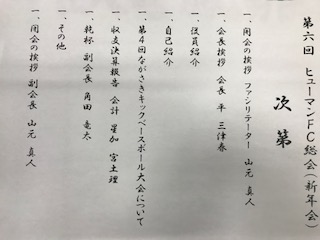 第六回 ヒューマンFC総会(新年会)
次第
一、開会の挨拶 ファシリテーター 山元 真人
一、会長挨拶 会長 平 三津春
一、役員紹介
一、自己紹介
一、第4回ながさきキックベースボール大会について
一、収支決算報告 会計 星加 富士理
一、乾杯 副会長 角田 竜太
一、その他
一、閉会の挨拶 副会長 山元 真人